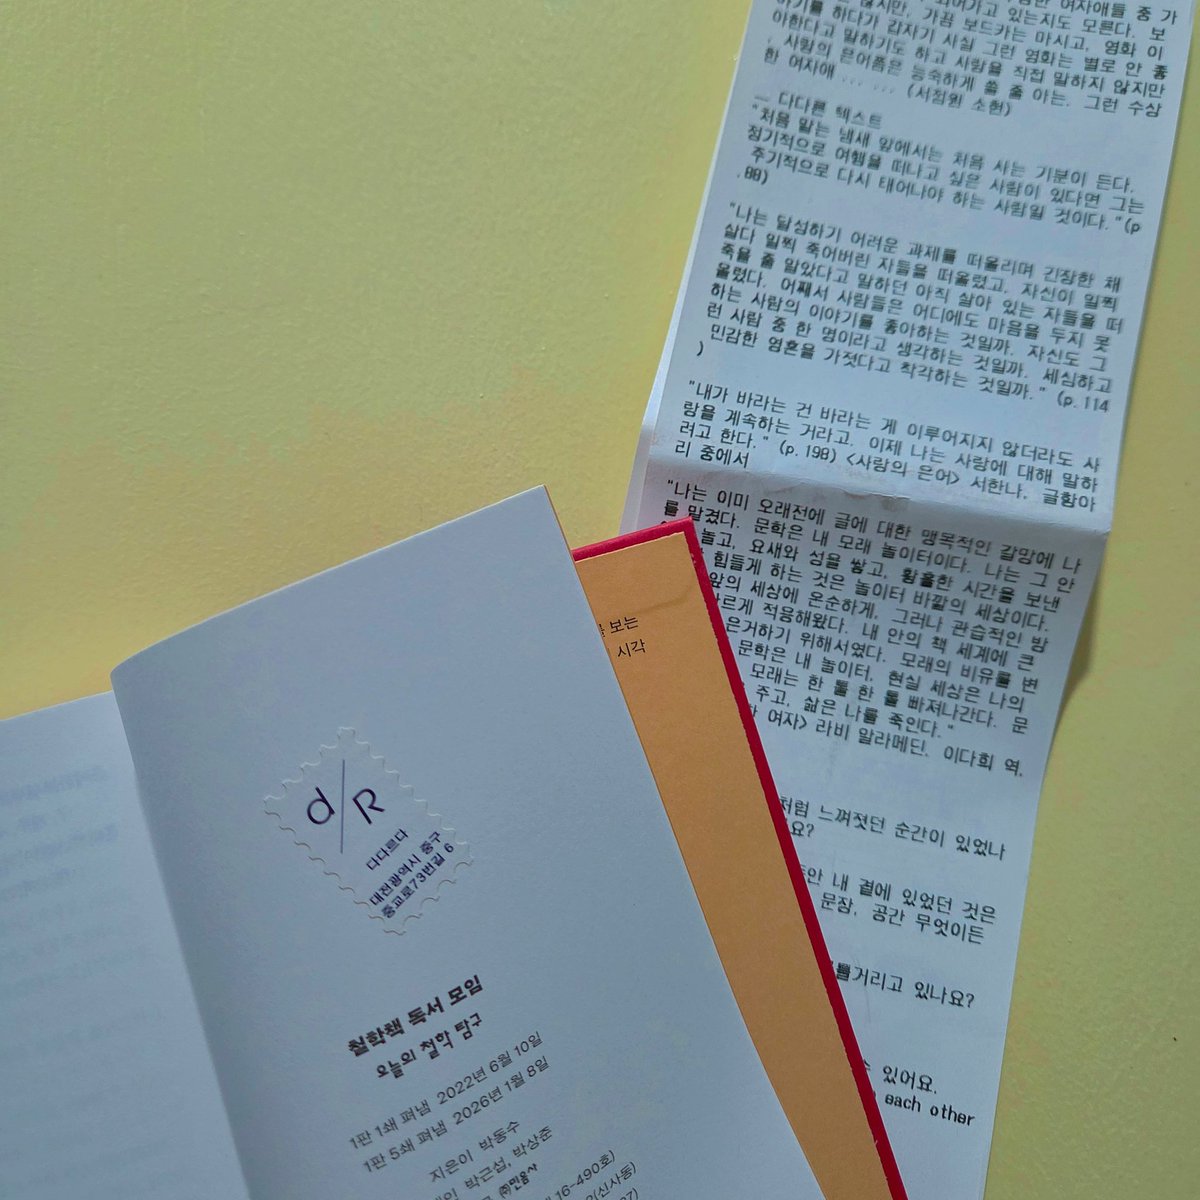 하기를 하다가 갑자기 사실 그런 영화는 별로 안 좋
아한다고 말하기도 하고 사랑을 직접 말하지 않지만
, 사랑의 은어쯤은 능숙하게 쓸 줄 아는. 그런 수상
한 여자애 ... ... (서점원 소현)
— 다다른 텍스트
"처음 맡는 냄새 앞에서는 처음 사는 기분이 든다.
정기적으로 여행을 떠나고 싶은 사람이 있다면 그는
주기적으로 다시 태어나야 하는 사람일 것이다."(p
.88)
"나는 달성하기 어려운 과제를 떠올리며 긴장한 채
살다 일찍 죽어버린 자들을 떠올렸고, 자신이 일찍
죽을 줄 알았다고 말하던 아직 살아 있는 자들을 떠
올렸다. 어째서 사람들은 어디에도 마음을 두지 못
하는 사람의 이야기를 좋아하는 것일까. 자신도 그
런 사람 중 한 명이라고 생각하는 것일까. 세심하고
민감한 영혼을 가졌다고 착각하는 것일까." (p.114
)
"내가 바라는 건 바라는 게 이루어지지 않더라도 사
랑을 계속하는 거라고. 이제 나는 사랑에 대해 말하
려고 한다." (p.198) <사랑의 은어> 서한나, 글항아
리 중에서
"나는 이미 오래전에 글에 대한 맹목적인 갈망에 나
를 맡겼다. 문학은 내 모래 놀이터이다. 나는 그 안
놀고, 요새와 성을 쌓고, 황홀한 시간을 보낸
힘들게 하는 것은 놀이터 바깥의 세상이다.
앞의 세상에 온순하게, 그러나 관습적인 방
르게 적응해왔다. 내 안의 책 세계에 큰
은거하기 위해서였다. 모래의 비유를 변
문학은 내 놀이터, 현실 세상은 나의
모래는 한 톨 한 톨 빠져나간다. 문
주고, 삶은 나를 죽인다."
여자> 라비 알라메딘, 이다희 역,
처럼 느껴졌던 순간이 있었나
요?
안 내 곁에 있었던 것은
문장, 공간 무엇이든
거리고 있나요?
있어요.
each other
보는
시각
d/R
다다르다
대전광역시 중구
중교로73번길 6
철학책 독서 모임
오늘의 철학 탐구
1판 1쇄 펴냄 2022년 6월 10일
1판 5쇄 펴냄 2026년 1월 8일
지은이 박동수
박근섭, 박상준
(주)민음사
16-490호)
(신사동)